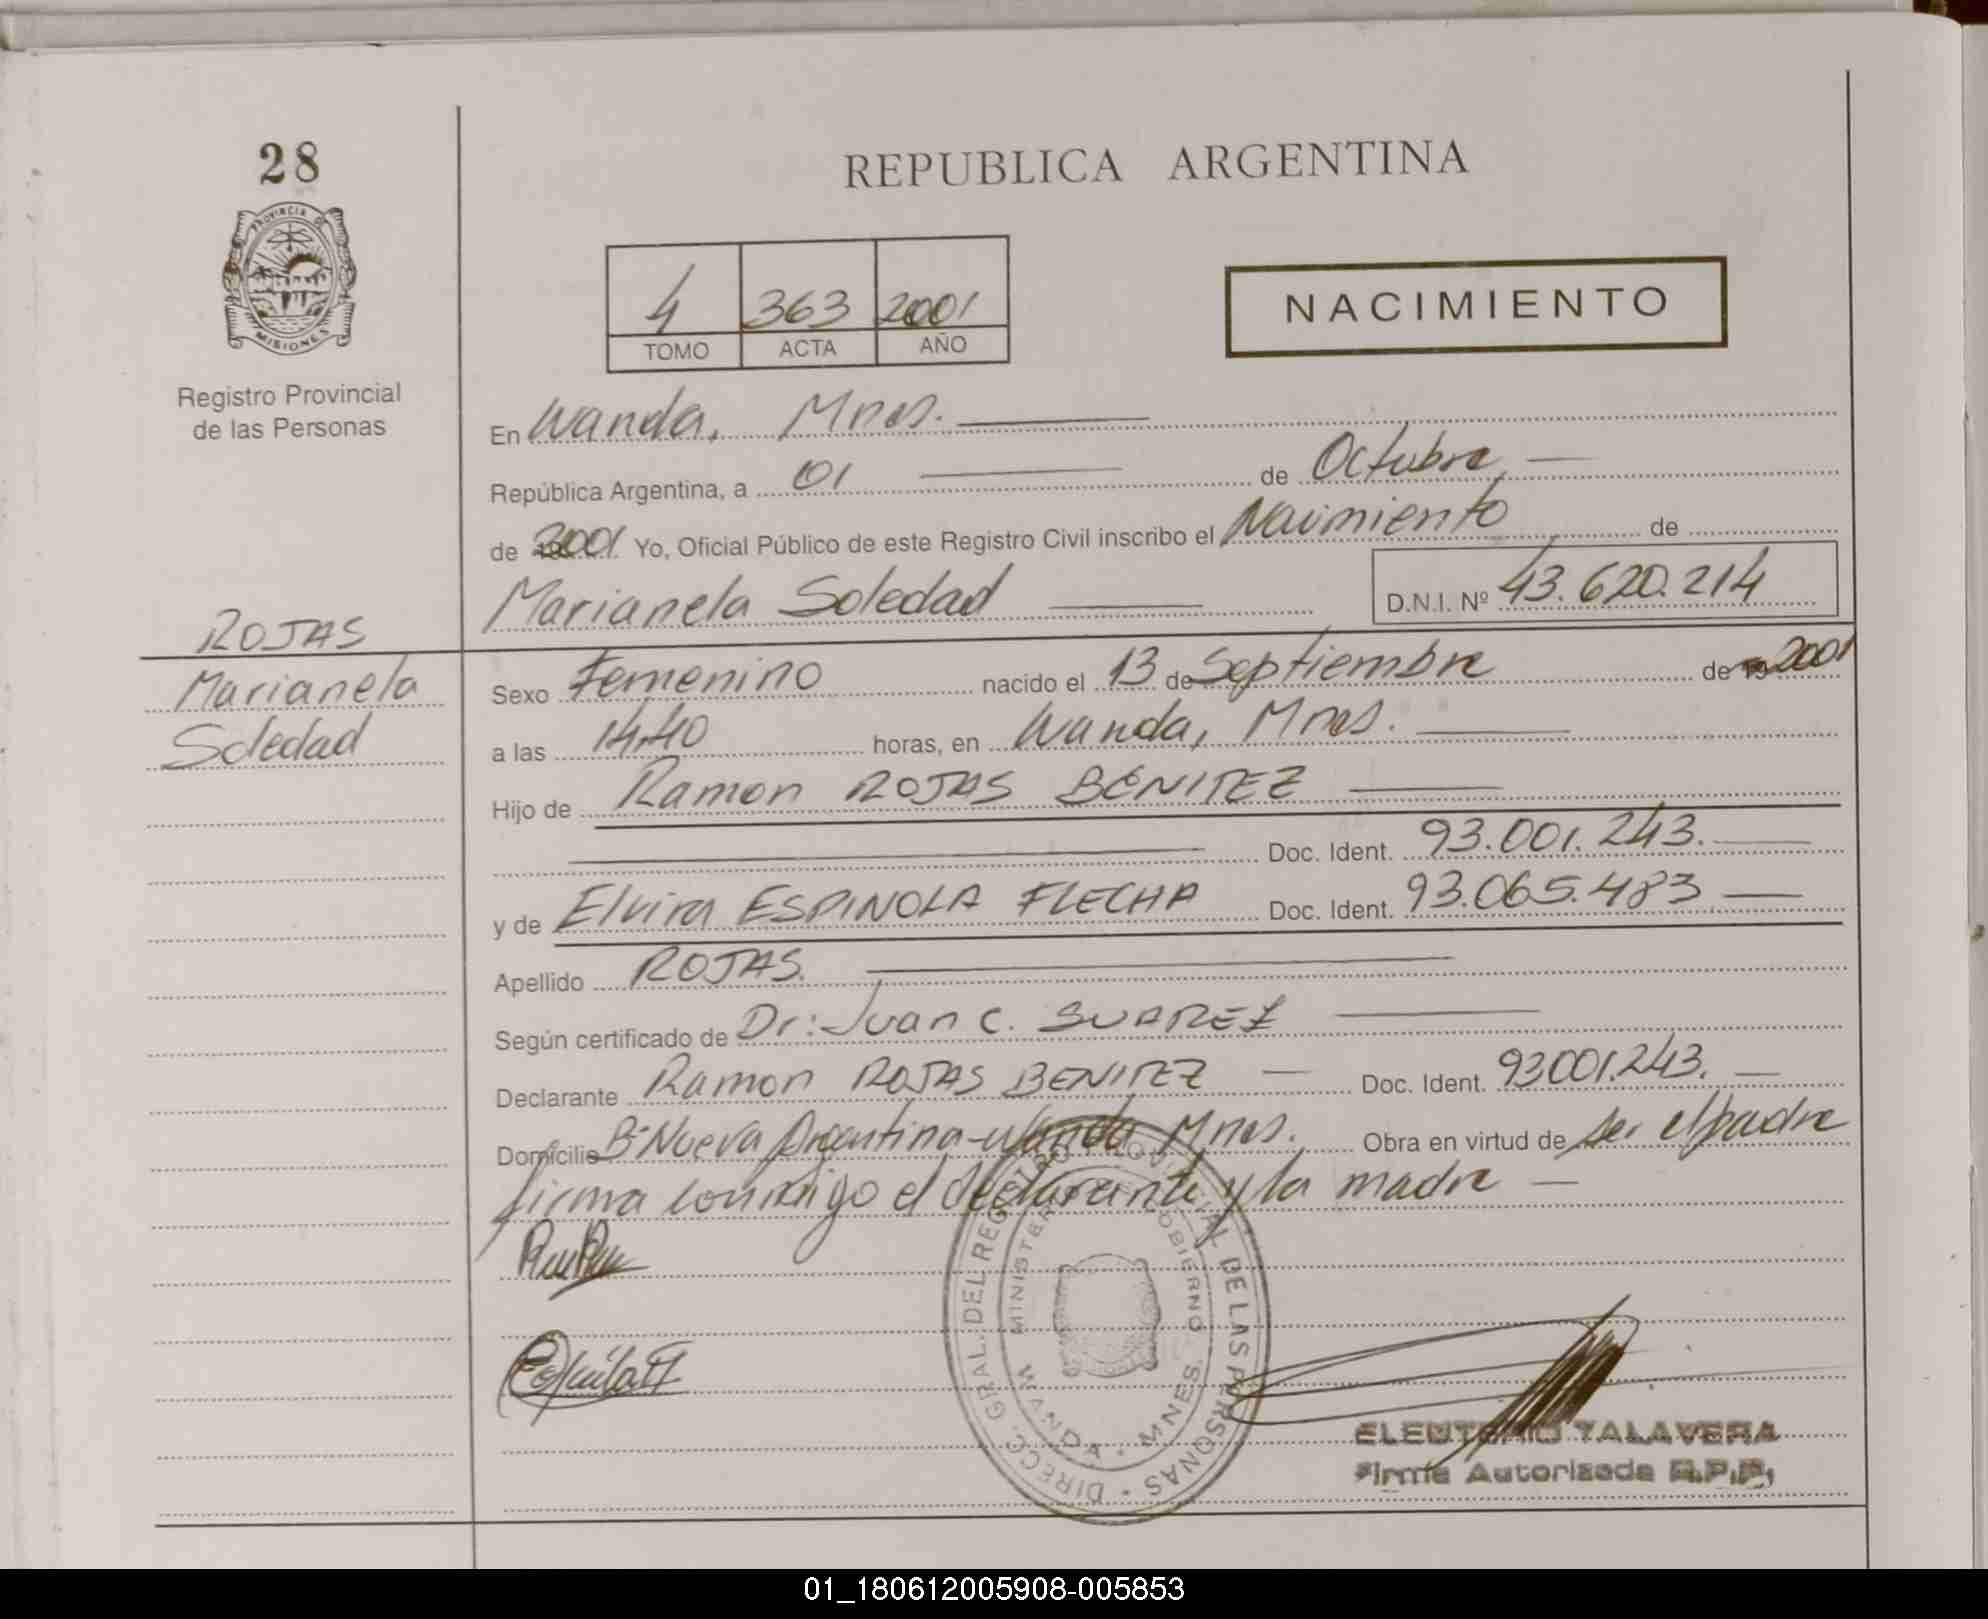 28
PROVINCIA DE
MISIONES
Registro Provincial
de las Personas
REPUBLICA ARGENTINA
4 363 2001
TOMO ACTA AÑO
NACIMIENTO
En Wanda, Mnes.
República Argentina, a 01 de Octubre
de 2001 Yo, Oficial Público de este Registro Civil inscribo el Nacimiento de
Marianela Soledad D.N.I. Nº 43.620.214
ROJAS
Marianela
Soledad
Sexo Femenino nacido el 13 de Septiembre de 19 2001
a las 14,40 horas, en Wanda, Mnes.
Hijo de Ramon ROJAS BENITEZ
Doc. Ident. 93.001.243.
y de Elvira ESPINOLA FLECHA Doc. Ident. 93.065.483
Apellido ROJAS.
Según certificado de Dr: Juan C. SUAREZ
Declarante Ramon ROJAS BENITEZ Doc. Ident. 93001.243.
Domicilio Bº Nueva Argentina-Wanda Mnes. Obra en virtud de ser el padre
firma conmigo el declarante y la madre
DIRECC. GRAL. DEL REGISTRO PROVINCIAL DE LAS PERSONAS
MINISTERIO GOBIERNO
WANDA • MNES.
ELEUTERIO TALAVERA
Firma Autorizada R.P.P.
01_180612005908-005853